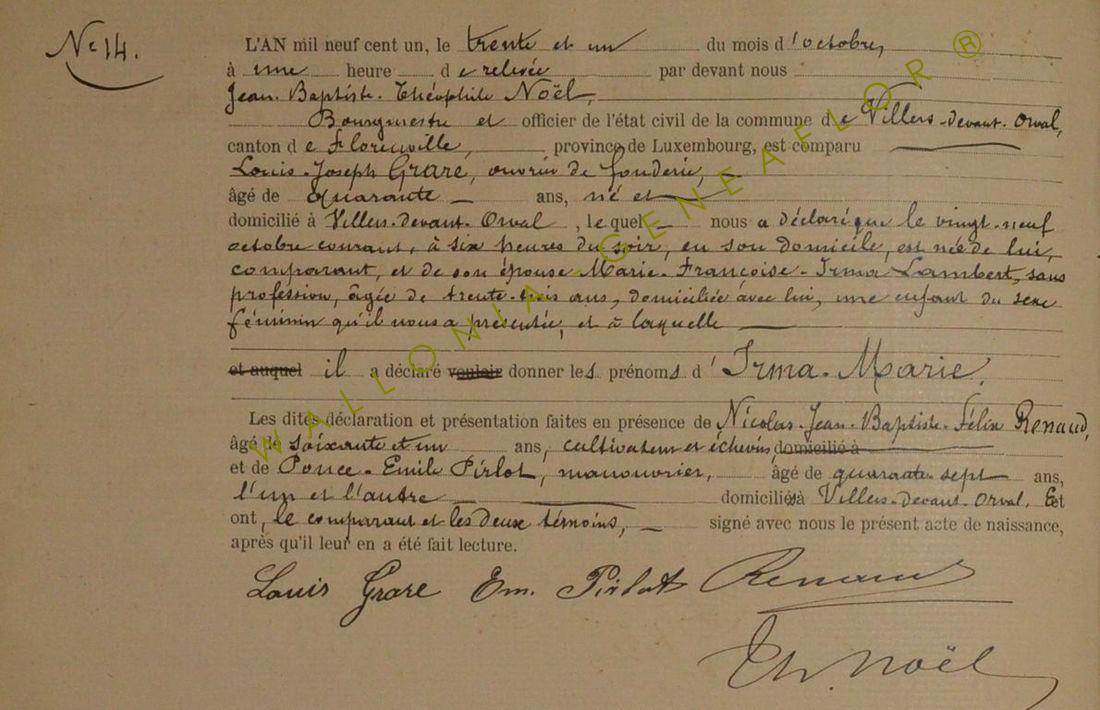 N° 14.
L'AN mil neuf cent un, le trente et un du mois d'octobre,
à une heure de relevée par devant nous
Jean-Baptiste-Théophile Noël,
Bourgmestre et officier de l'état civil de la commune de Villers-devant-Orval,
canton de Florenville, province de Luxembourg, est comparu
Louis-Joseph Grare, ouvrier de fonderie,
âgé de quarante ans, né et
domicilié à Villers-devant-Orval, lequel nous a déclaré que le vingt-neuf
octobre courant, à six heures du soir, en son domicile, est née de lui,
comparant, et de son épouse Marie-Françoise-Irma Lambert, sans
profession, âgée de trente-trois ans, domiciliée avec lui, une enfant du sexe
féminin qu'il nous a présentée, et à laquelle
et auquel il a déclaré vouloir donner les prénoms d'Irma-Marie.
Les dites déclaration et présentation faites en présence de Nicolas-Jean-Baptiste-Félix Renaud,
âgé de soixante et un ans, cultivateur et échevin, domicilié à
et de Ponce-Emile Pirlot, manouvrier, âgé de quarante-sept ans,
l'un et l'autre domiciliés à Villers-devant-Orval. Et
ont, le comparant et les deux témoins, signé avec nous le présent acte de naissance,
après qu'il leur en a été fait lecture.
Louis Grare Em. Pirlot Renaud
Th. Noël
WALLONIA GENEAFLOR ®